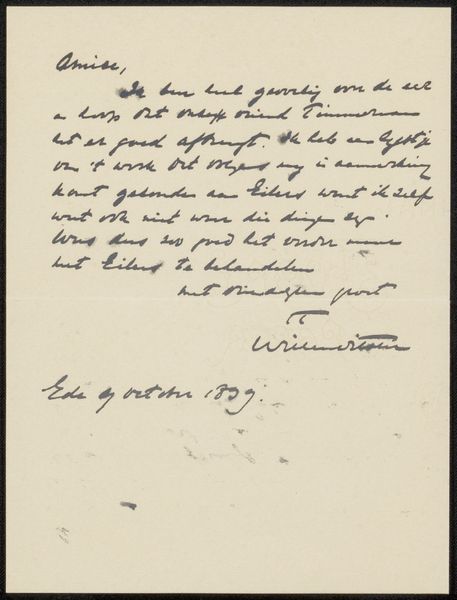 Amice,
Ik ben heel gevoelig voor de eer
en hoop dat onze vriend Timmerman
het er goed afbrengt. Ik heb een lijstje
van 't werk dat volgens mij in aanmerking
komt gezonden aan Eilers want ik zelf
weet ook niet waar die dingen zijn.
Wees dus zoo goed het verder maar
met Eilers te behandelen
met vriendelijken groet
Willem Witsen
Ede 9 October 1899.